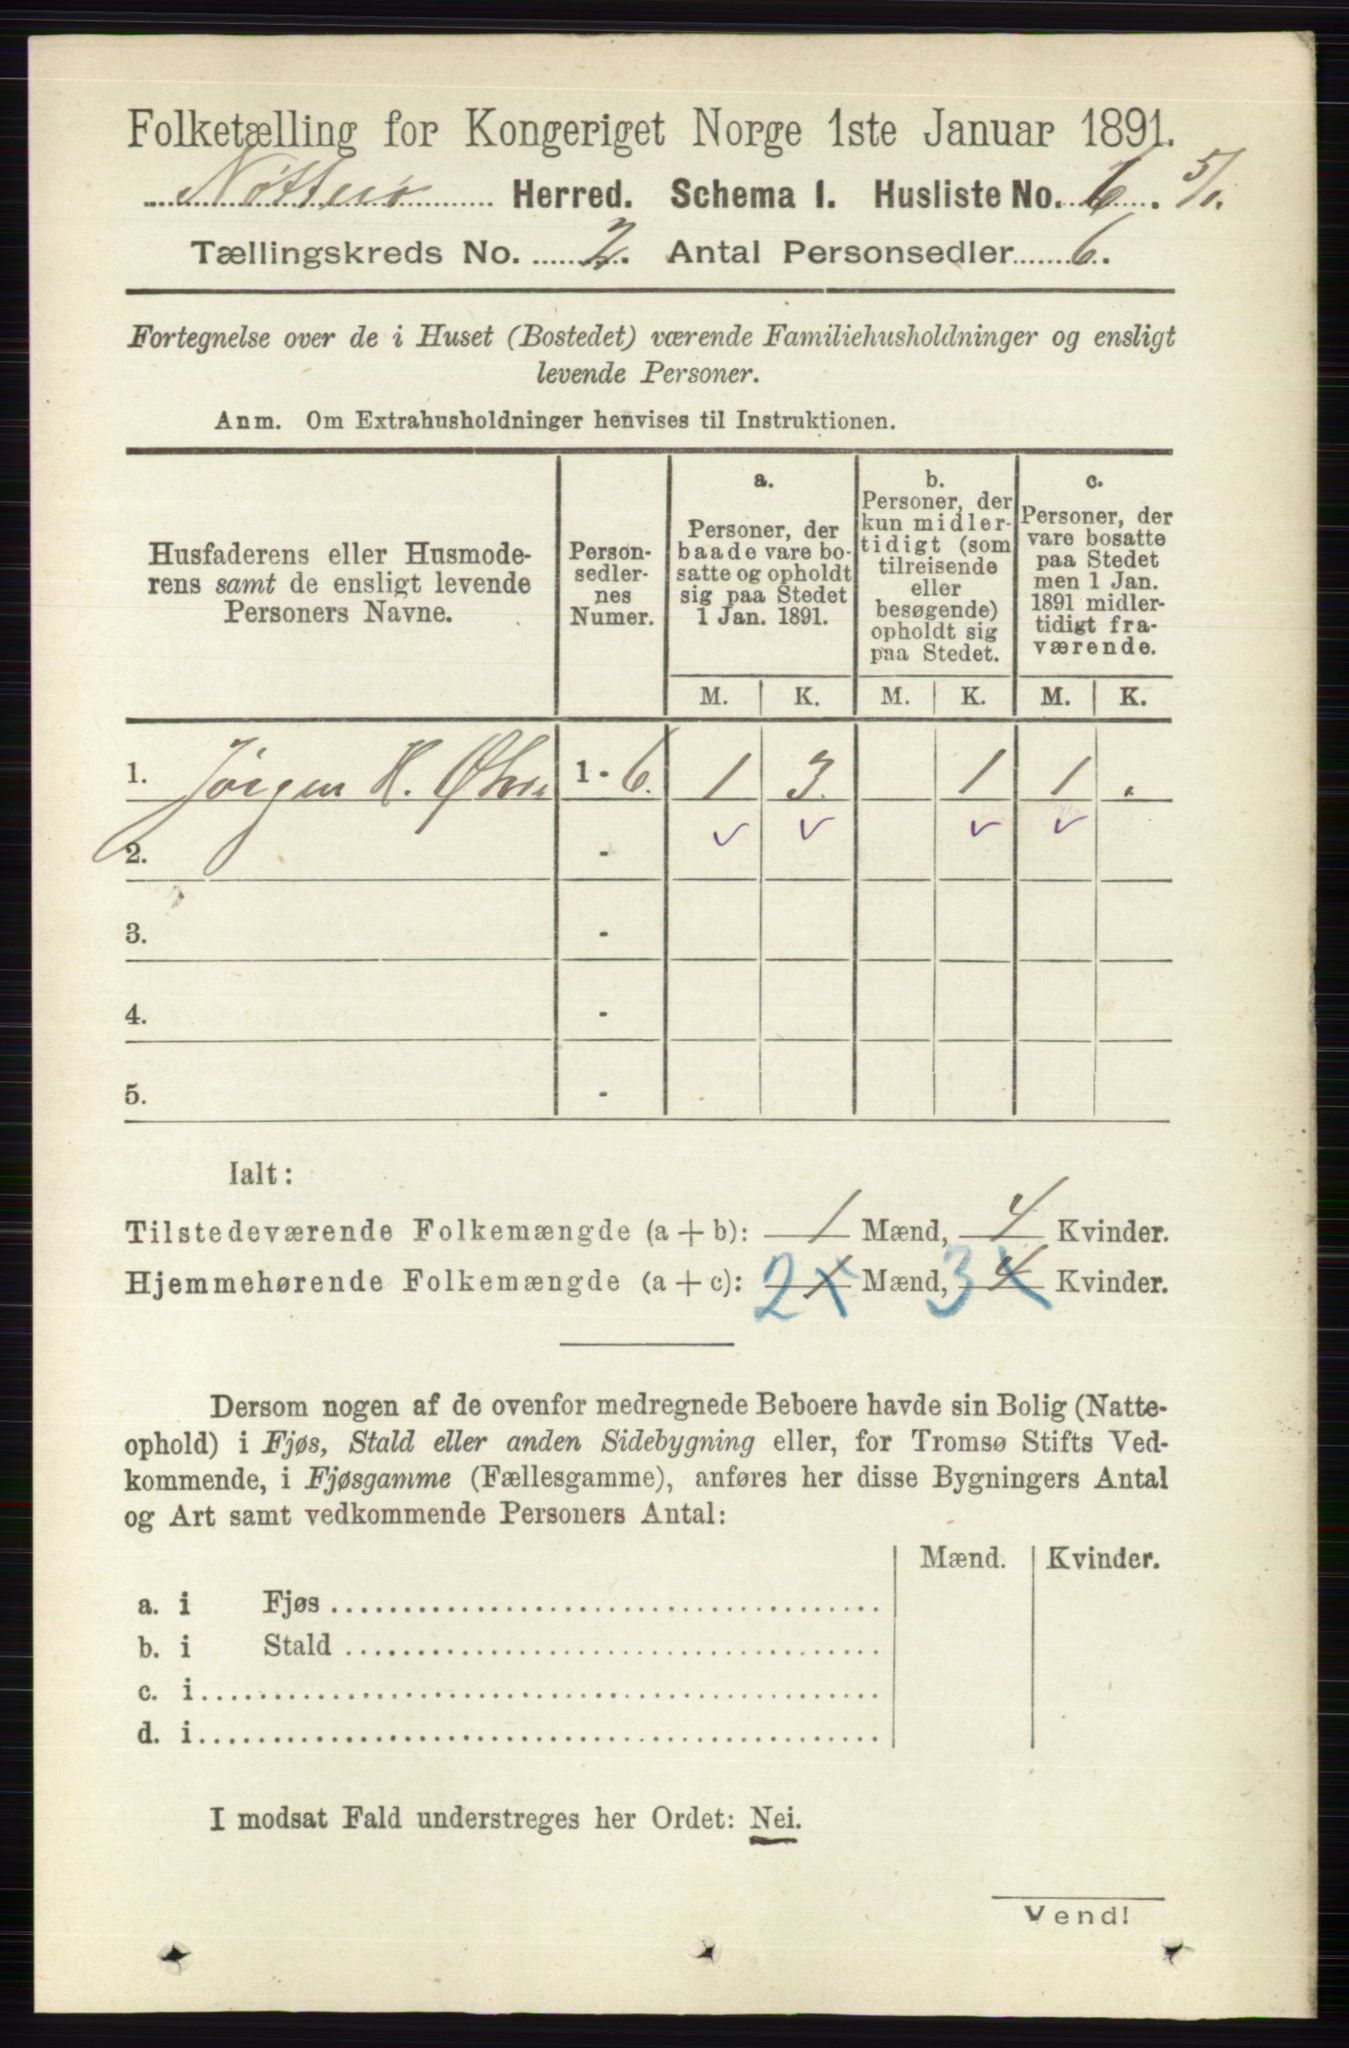 Folketælling for Kongeriget Norge 1ste Januar 1891.
Nøtterø Herred. Schema I. Husliste No. 6. 5/1.
Tællingskreds No. 2. Antal Personsedler 6.
Fortegnelse over de i Huset (Bostedet) værende Familiehusholdninger og ensligt
levende Personer.
Anm. Om Extrahusholdninger henvises til Instruktionen.
Husfaderens eller Husmode-
rens samt de ensligt levende
Personers Navne.
Person-
sedler-
nes
Numer.
a.
Personer, der
baade vare bo-
satte og opholdt
sig paa Stedet
1 Jan. 1891.
b.
Personer, der
kun midler-
tidigt (som
tilreisende
eller
besøgende)
opholdt sig
paa Stedet.
c.
Personer, der
vare bosatte
paa Stedet
men 1 Jan.
1891 midler-
tidigt fra-
værende.
M. K. M. K. M. K.
1. Jørgen H. 1 - 6. 1 3. 1 1 .
2. - ✓ ✓ ✓ ✓
3. -
4. -
5. -
Ialt:
Tilstedeværende Folkemængde (a + b): 1 Mænd, 4 Kvinder.
Hjemmehørende Folkemængde (a + c): 2 1 Mænd, 3 4 Kvinder.
Dersom nogen af de ovenfor medregnede Beboere havde sin Bolig (Natte-
ophold) i Fjøs, Stald eller anden Sidebygning eller, for Tromsø Stifts Ved-
kommende, i Fjøsgamme (Fællesgamme), anføres her disse Bygningers Antal
og Art samt vedkommende Personers Antal:
Mænd. Kvinder.
a. i Fjøs
b. i Stald
c. i
d. i
I modsat Fald understreges her Ordet: Nei.
Vend!